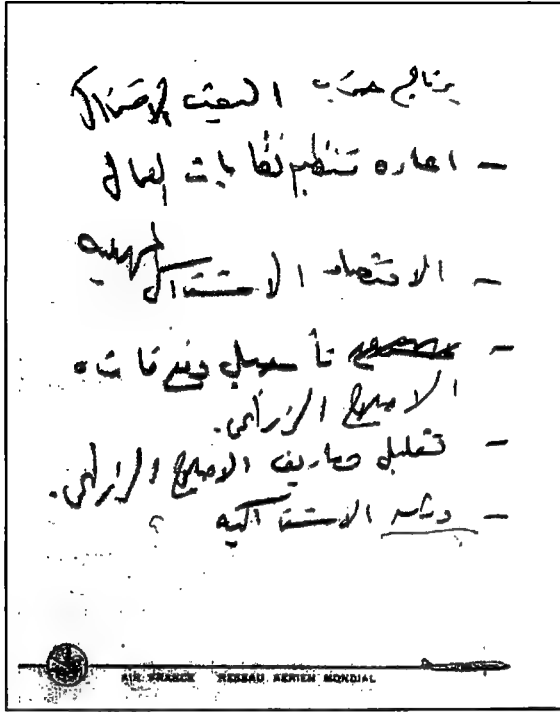 برنامج حزب البعث الاشتراكي
- اعاده تنظيم نقابات العمال
المهنيه
- الاقتصاد الاشتراكي
- تأجيل دفعات
الاصلاح الزراعي.
- تقليل مصاريف الاصلاح الزراعي.
- الاشتراكيه ؟
AIR FRANCE RESEAU AERIEN MONDIAL